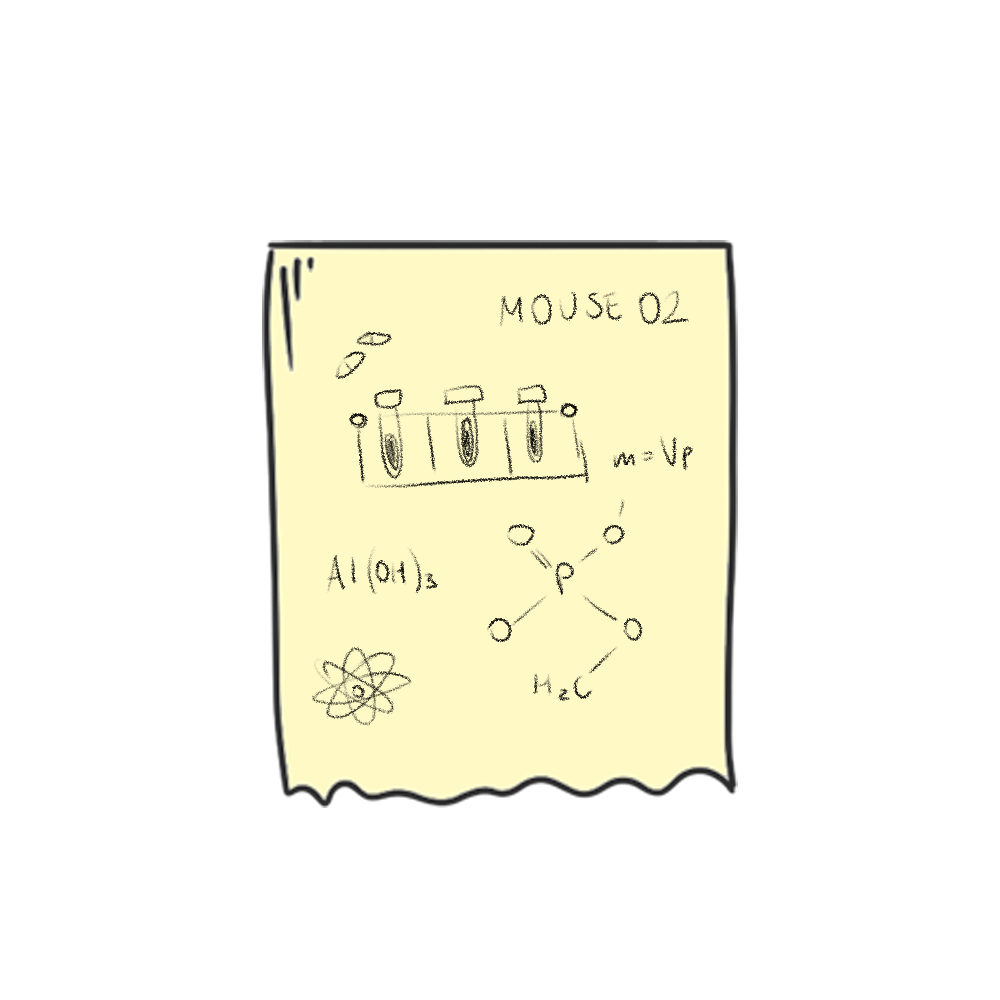 MOUSE 02
m=Vp
Al(OH)₃
O O
P
O O
H₂C